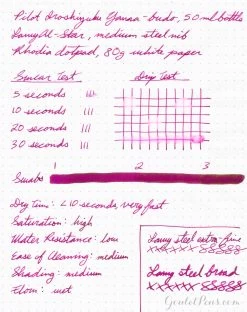 Pilot Iroshizuku Yama-budo, 50 ml bottle
Lamy Al-Star, medium steel nib
Rhodia dotpad, 80g white paper
Smear Test
Drip Test
5 seconds
10 seconds
20 seconds
30 seconds
1 2 3
Swabs
Dry Time: <10 seconds, very fast
Saturation: high
Water Resistance: low
Ease of Cleaning: medium
Shading: medium
Flow: wet
Lamy steel extra-fine
Lamy steel broad
GouletPens.com